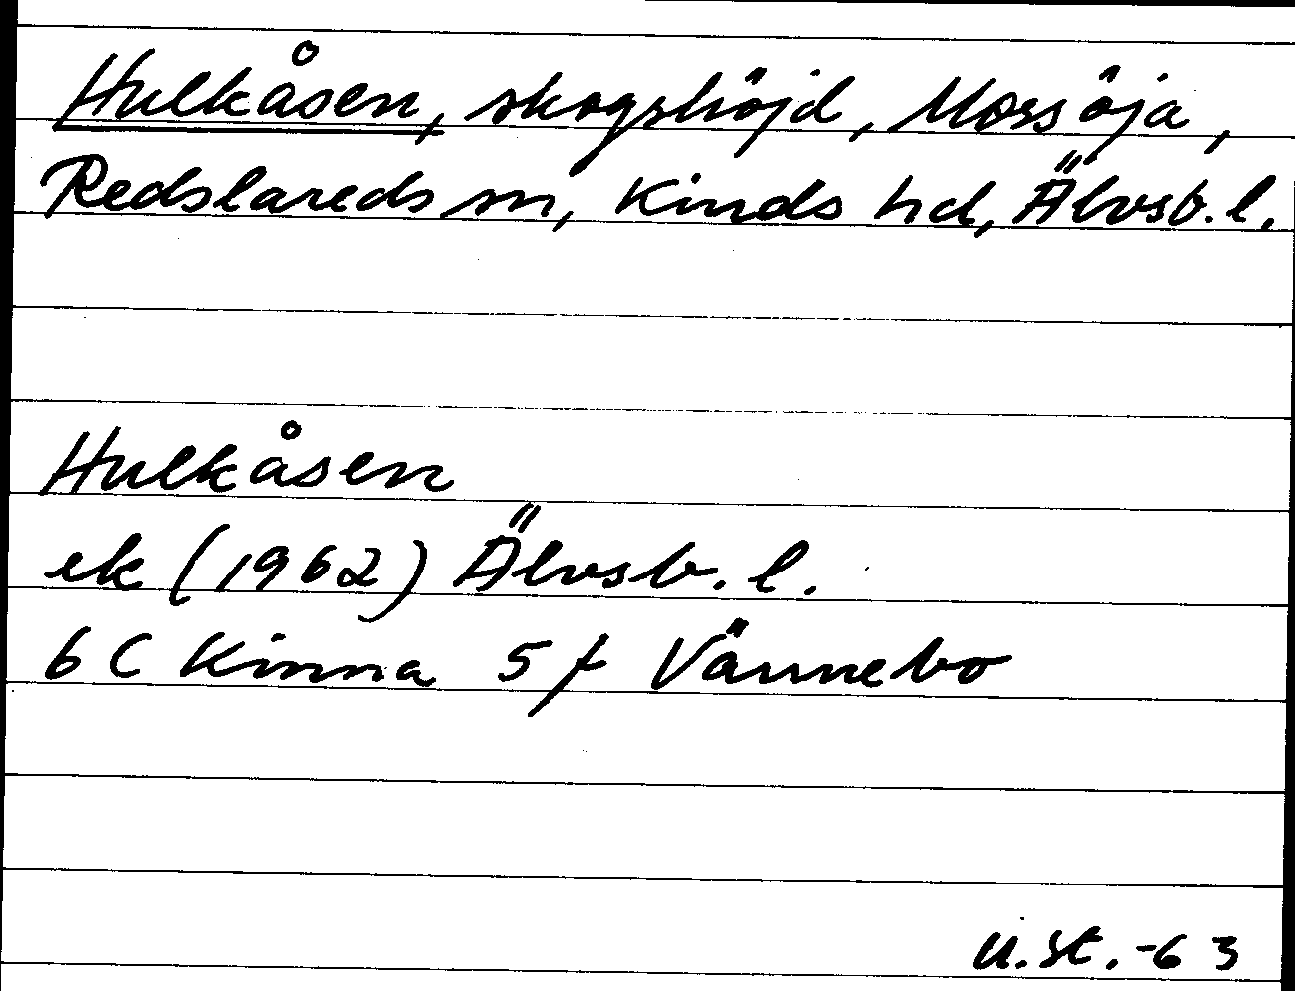 Hulkåsen, skogshöjd, Mossöja,
Redslareds sn, Kinds hd, Älvsb. l.
Hulkåsen
ek (1962) Älvsb. l.
6 C Kinna 5 f Vännebo
U.St.-63